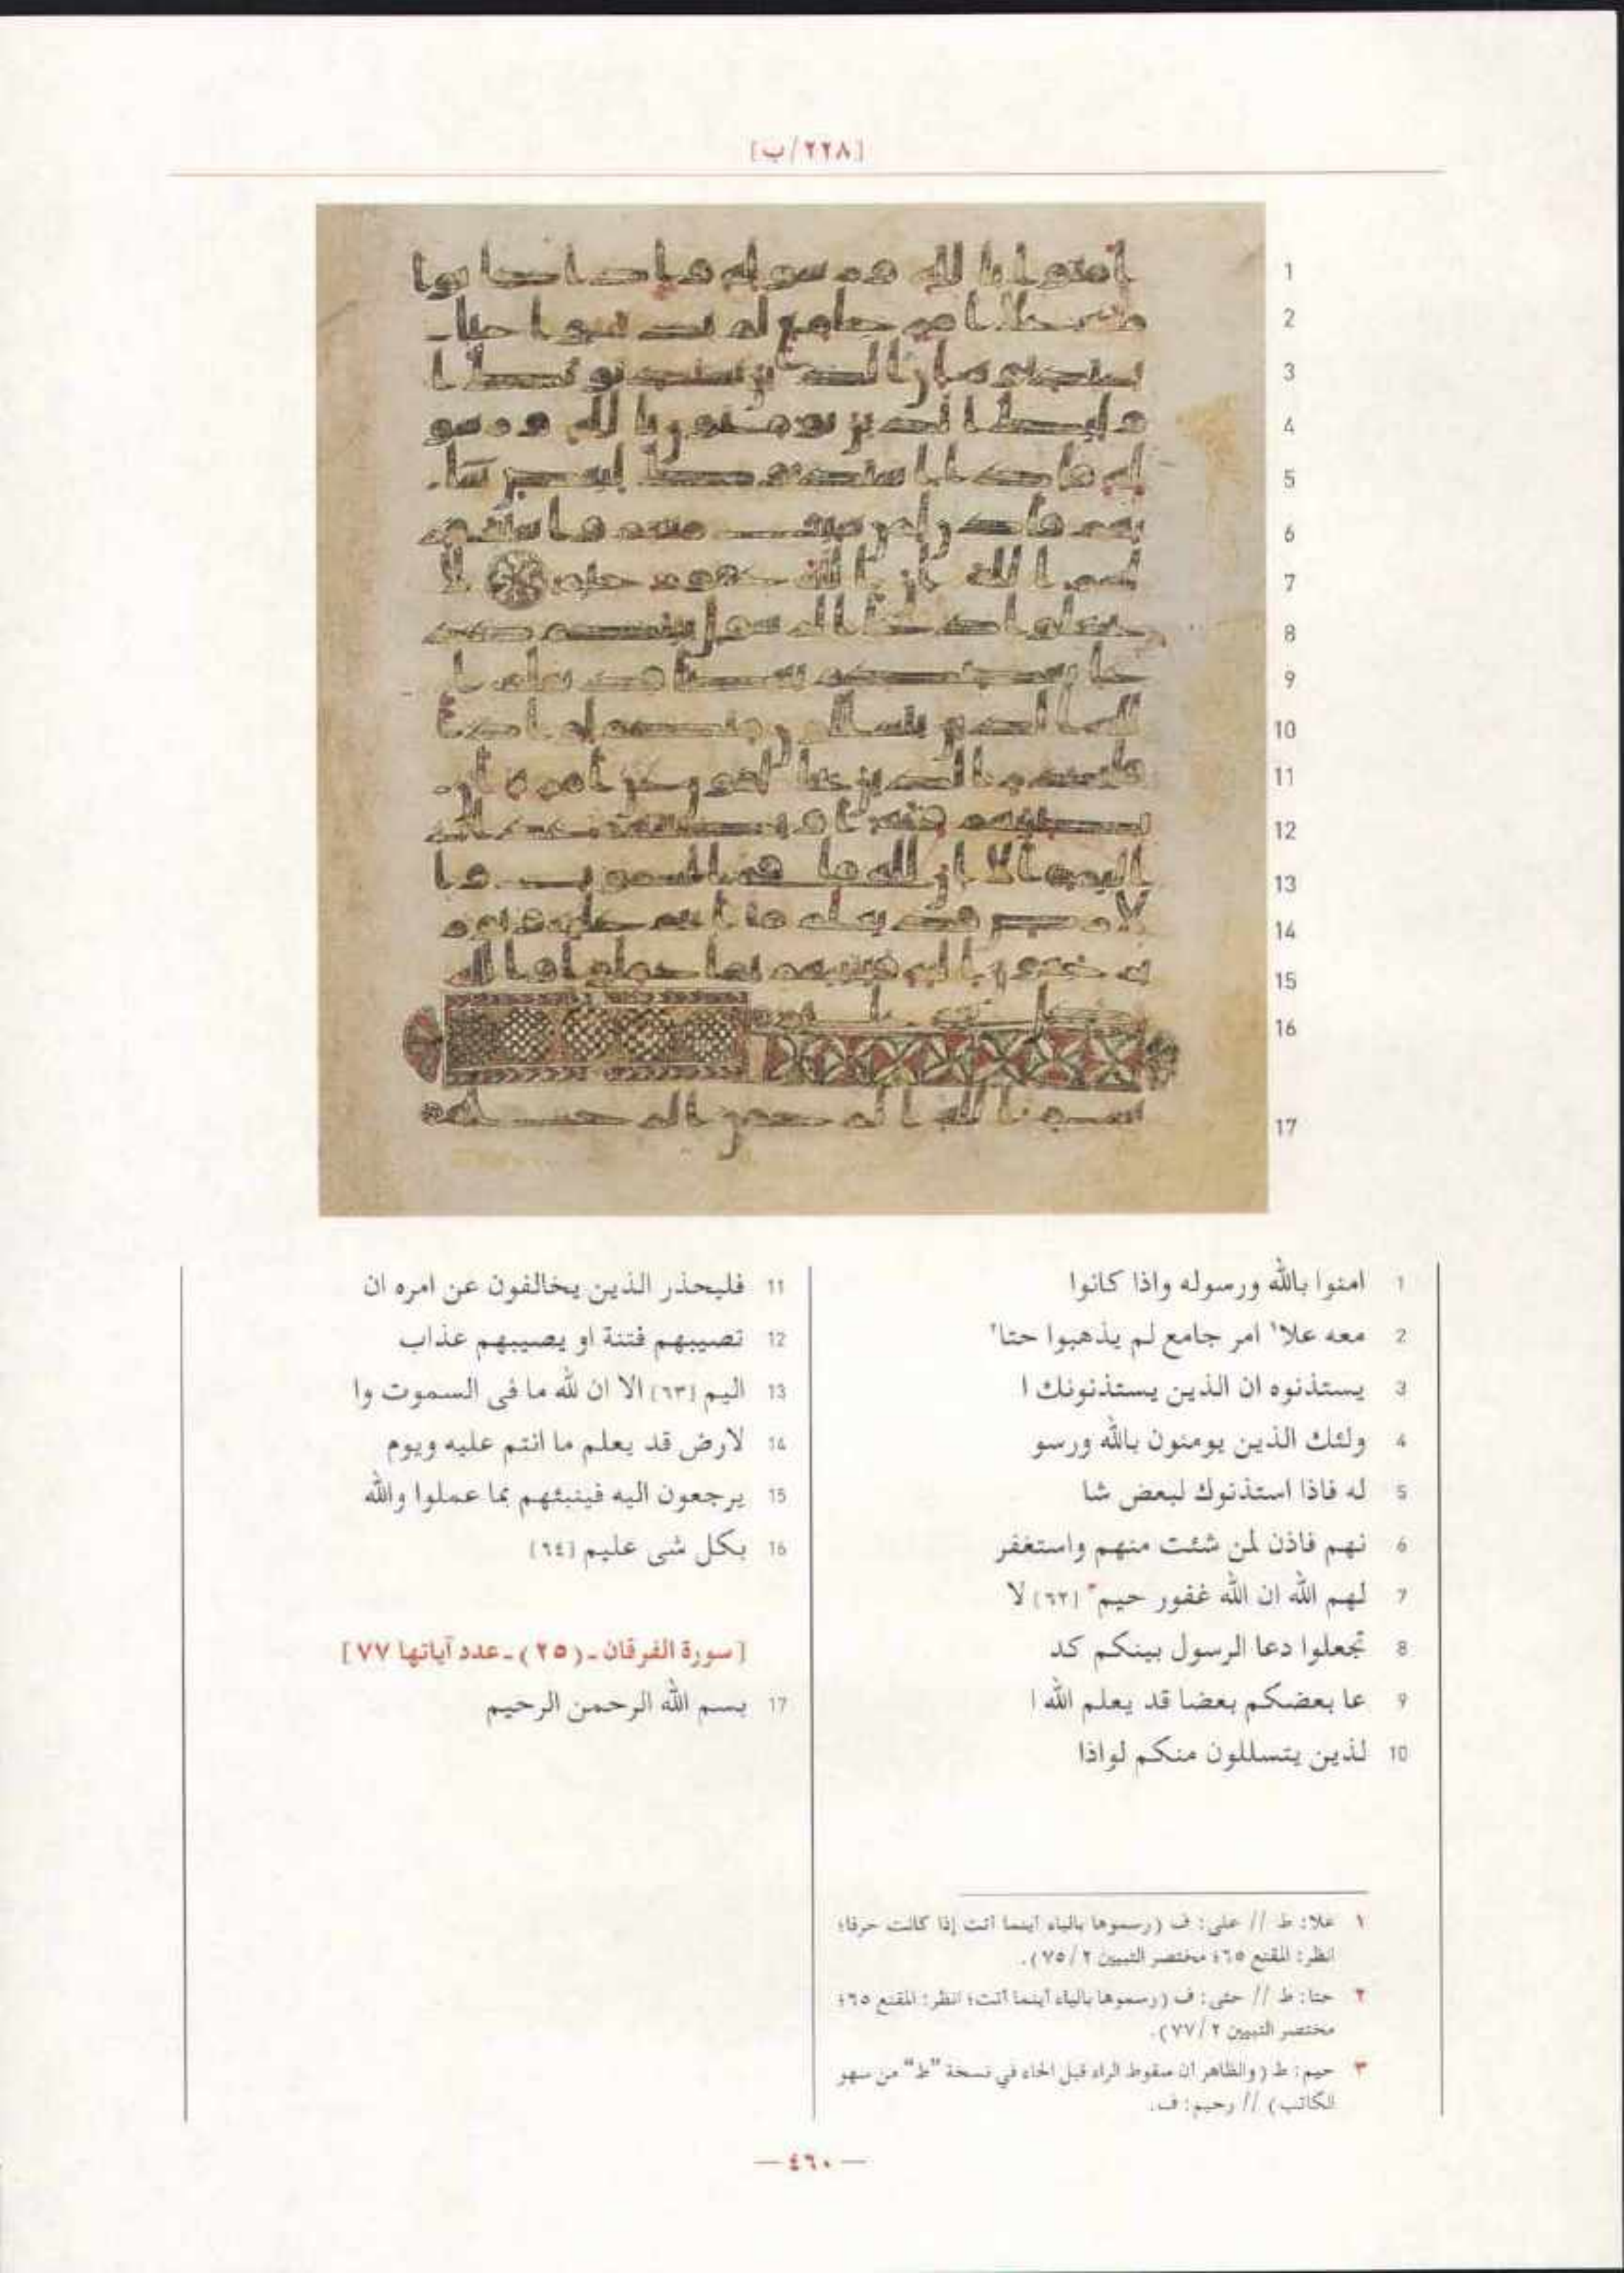 [٢٢٨/ب]
1 امنوا بالله ورسوله واذا كانوا
2 معه علا١ امر جامع لم يذهبوا حتا٢
3 يستذنوه ان الذين يستذنونك ا
4 ولئك الذين يومنون بالله ورسو
5 له فاذا استذنوك لبعض شا
6 نهم فاذن لمن شئت منهم واستغفر
7 لهم الله ان الله غفور حيم٣ [٦٢] لا
8 تجعلوا دعا الرسول بينكم كد
9 عا بعضكم بعضا قد يعلم الله ا
10 لذين يتسللون منكم لواذا
11 فليحذر الذين يخالفون عن امره ان
12 تصيبهم فتنة او يصيبهم عذاب
13 اليم [٦٣] الا ان لله ما فى السموت وا
14 لارض قد يعلم ما انتم عليه ويوم
15 يرجعون اليه فينبئهم بما عملوا والله
16 بكل شى عليم [٦٤]
[سورة الفرقان ـ (٢٥) ـ عدد آياتها ٧٧]
17 بسم الله الرحمن الرحيم
١ علا: ط // على: ف (رسموها بالياء أينما أتت إذا كانت حرفا؛
انظر: المقنع ٦٥؛ مختصر التبيين ٢/٧٥).
٢ حتا: ط // حتى: ف (رسموها بالياء أينما أتت؛ انظر: المقنع ٦٥؛
مختصر التبيين ٢/٧٧).
٣ حيم: ط (والظاهر أن سقوط الراء قبل الحاء في نسخة "ط" من سهو
الكاتب) // رحيم: ف.
— ٤٦٠ —